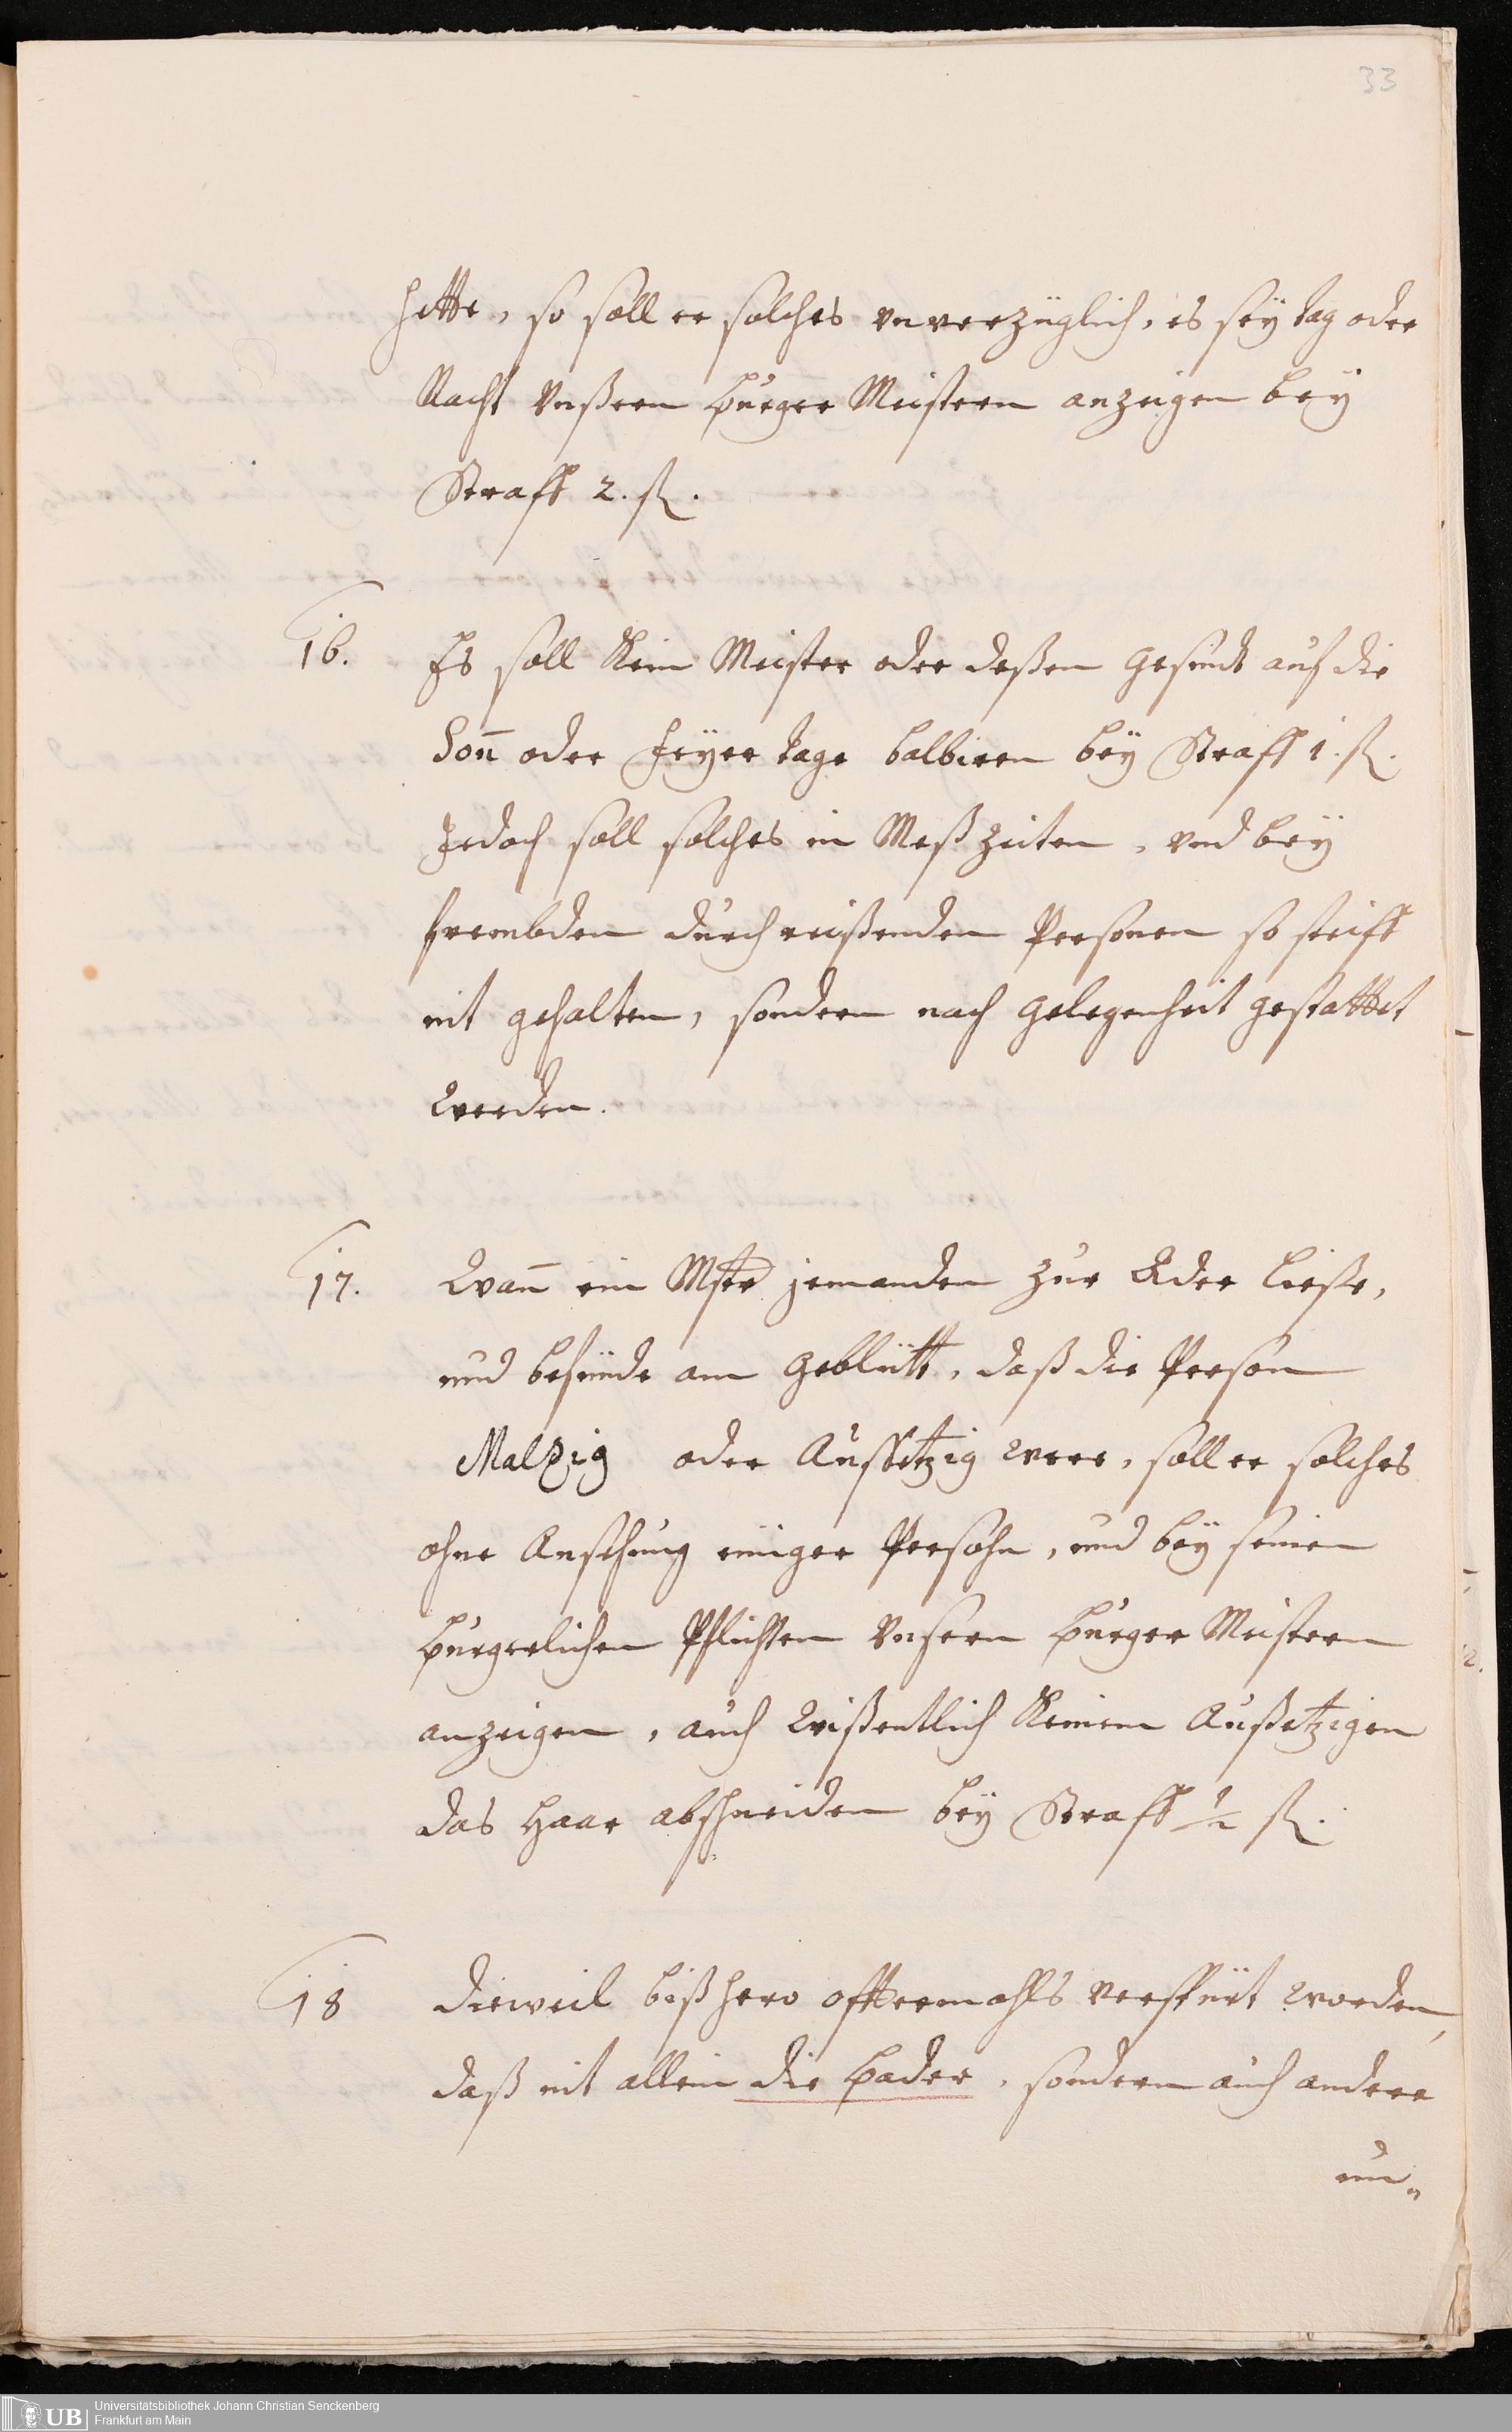 33
hette, so soll er solches vnverzüglich, es seÿ tag oder
Nacht Vnßern Burger Meistern anzeigen beÿ
Straff 2. fl.
16. Es soll Kein Meister oder deßen gesindt auf die
Son̄ oder Feÿer tage balbiren beÿ Straff 1. fl.
Jedoch soll solches in Meß zeiten, vnd beÿ
frembden durch reißenden Personen so steiff
nit gehalten, sondern nach gelegenheit gestattet
werden.
17. Wan̄ ein Mstr jemanden zur Ader ließe,
und befünde am geblütt, daß die Person
Malzig oder Aussetzig were, soll er solches
ohne Ansehung einiger Persohn, und beÿ seinen
Burgerlichen Pflichten Vnsern Burger Meistern
anzeigen, auch Wißentlich Keinem Außetzigen
das Haar abschneiden beÿ Straff ½ fl.
18 Dieweil bißhero offtermahls verspürt worden,
daß nit allein die Bader, sondern auch andere
un„
UB Universitätsbibliothek Johann Christian Senckenberg
Frankfurt am Main